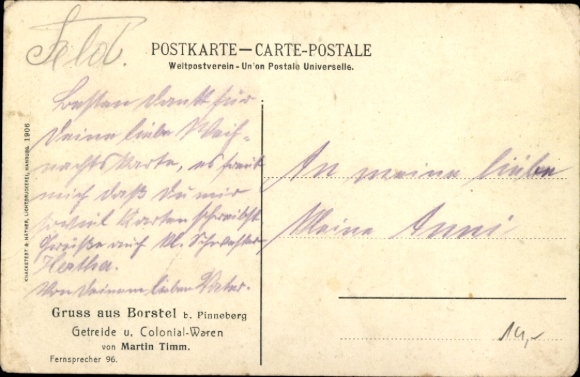 Feld.
POSTKARTE — CARTE-POSTALE
Weltpostverein - Union Postale Universelle.
Besten Dank für
deine liebe Weih-
nachtskarte, es freut
mich daß du mir
soviel Karten schreibst
Grüße auch Kl. Schwester
Hertha.
Von deinem lieben Vater.
An meine liebe
Kleine Anni
KNACKSTEDT & NÄTHER, LICHTDRUCKEREI, HAMBURG. 1906.
Gruss aus Borstel b. Pinneberg
Getreide u. Colonial-Waren
von Martin Timm.
Fernsprecher 96.
14,-